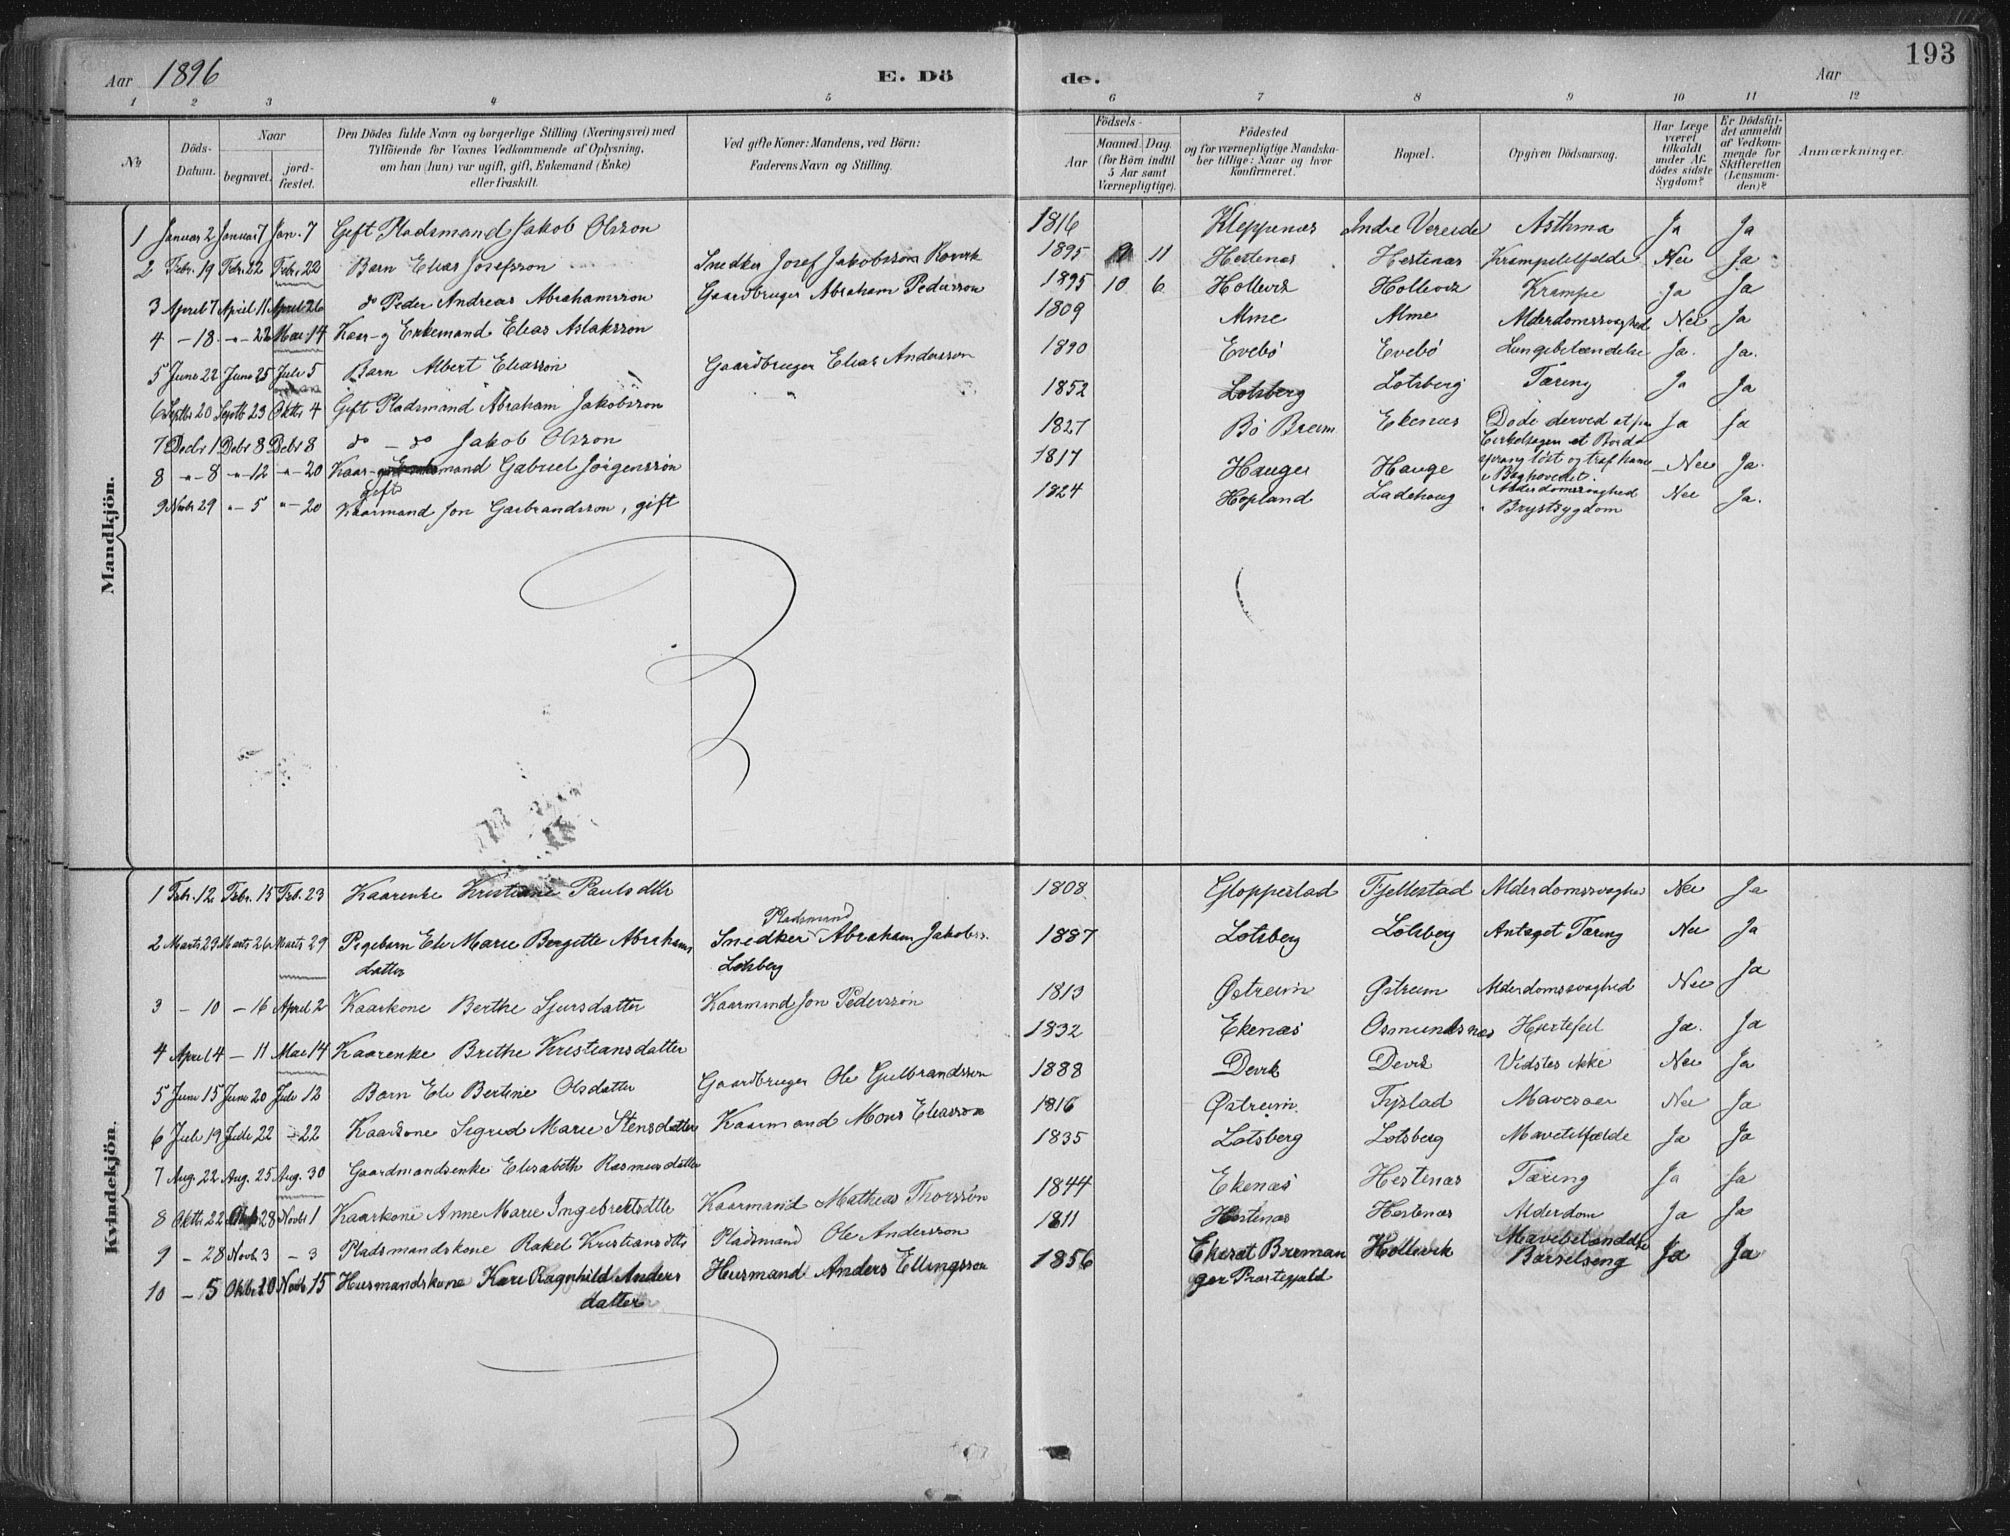 193
Aar 1896 E. Dö de. Aar
1 2 3 4 5 6 7 8 9 10 11 12
No
Döds-Datum.
Naar
begravet.
jord-fæstet.
Den Dödes fulde Navn og borgerlige Stilling (Næringsvei) med
Tilföiende for Voxnes Vedkommende af Oplysning,
om han (hun) var ugift, gift, Enkemand (Enke)
eller fraskilt.
Ved gifte Koner: Mandens, ved Börn:
Faderens Navn og Stilling.
Födsels-
Aar
Maaned. Dag.
(for Börn indtil
5 Aar samt
Værnepligtige).
Födested
og for værnepligtige Mandska-
ber tillige: Naar og hvor
konfirmeret.
Bopæl.
Opgiven Dödsaarsag.
Har Læge
været
tilkaldt
under Af-
dödes sidste
Sygdom?
Er Dödsfal-
det anmeldt
af Vedkom-
mende for
Skifteretten
(Lensman-
den)?
Anmærkninger.
Mandkjön.
1 Januar 2 Januar 7 Jan. 7 Gift Pladsmand Jakob Olsson 1816 Kleppenæs Indre Vereide Asthma Ja Ja
2 Febr. 19 Febr. 22 Febr 22 Barn Elias Josefsson Snedker Josef Jakobsson 1895 11 Hestenæs Hestenæs Krampetilfælde Nei Ja
3 April 7 April 11 April 26 do Peder Andreas Abrahamsson Gaardbruger Abraham Pedersson 1895 10 6 Hollevik Hollevik Krampe Ja Ja
4 - 18 -"- 22 Mai 14 Kaar- og Enkemand Elias Aslaksson 1809 Alme Alme Alderdomssvaghed Nei Ja
5 Juni 22 Juni 25 Juli 5 Barn Albert Eliasson Gaardbruger Elias Andersson 1890 Evebö Evebö Lungebetændelse Ja. Ja.
6 Septbr 20 Septb 23 Oktbr 4 Gift Pladsmand Abraham Jakobsson 1852 Lotsberg Lotsberg Tæring Ja Ja
7 Decbr 1 Debr 8 Debr 8 do - do Jakob Olsson 1827 Bö Breim Ekenæs Döde derved at
Cirkelsagen et Bord
sprang löst og traf ham
i Baghovedet. Ja Ja
8 -"- 8 -"- 12 -"- 20 Kaar- mand Gabriel Jörgenssön 1817 Hauge Hauge Alderdomssvaghed Nei Ja.
gift
9 Novbr 29 "- 5 "- 20 Kaarmand Jon Garbrandsson, gift 1824 Hopland Ladehaug Brystsygdom Nei Ja.
Kvindekjön.
1 Febr. 12 Febr. 15 Feb. 23 Kaarenke Kristiane Paulsdtte 1808 Gloppestad Fjellestad Alderdomssvaghed Nei Ja
2 Marts 23 Marts 26 Marts 29 Pigebarn Eli Marie Bergitte Abrahams
datter Pladsmand
Snedker Abraham Jakobss.
Lotsberg 1887 Lotsberg Lotsberg Antaget Tæring Nei Ja
3 - 10 - 16 April 2 Kaarkone Berthe Sjursdatter Kaarmand Jon Pederssön 1813 Östreim Östreim Alderdomssvaghed Nei Ja
4 April 4 - 11 Mai 14 Kaarenke Brithe Kristiansdatter 1832 Ekenæs Osmundsnæs Hjertefeil Ja. Ja
5 Juni 15 Juni 20 Juli 12 Barn Eli Bertine Olsdatter Gaardbruger Ole Gulbrandsson 1888 Devik Devik Vidstes ikke Nei Ja
6 Juli 19 Juli 22 - 22 Kaarkone Sigrid Marie Stensdatter Kaarmand Mons Eliasson 1816 Östreim Fjstad Mavesaar Nei Ja
7 Aug. 22 Aug. 25 Aug. 30 Gaardmandsenke Elisabeth Rasmusdatter 1835 Lotsberg Lotsberg Mavetilfælde Ja Ja
8 Oktbr 22 28 Novbr 1 Kaarkone Anne Marie Ingebretsdtte Kaarmand Mathias Thorsson 1844 Ekenæs Hestenæs Tæring Ja Ja
9 - 28 Novb 3 - 3 Pladsmandskone Rakel Kristiansdtte Pladsmand Ole Andersson 1811 Hestenæs Hestenæs Alderdom Ja Ja
10 - 5 Oktbr 10 Novb 15 Husmandskone Kari Ragnhild Anders
datter Husmand Anders Ellingsson 1856 Ekeræt Bremanger Prestegjæld Hollevik Mavebetændelse
Barselseng Ja Ja